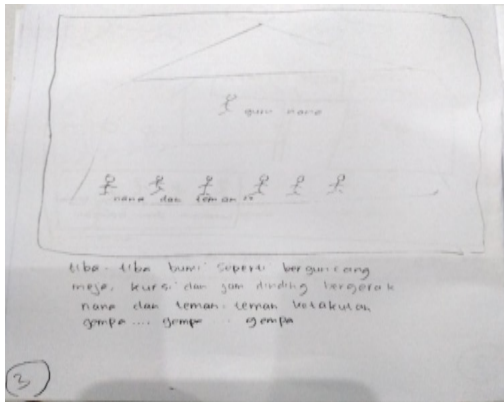 guru nana
nana dan teman"
tiba-tiba bumi seperti berguncang
meja, kursi dan jam dinding bergerak
nana dan teman-teman ketakutan
gempa.... gempa .. gempa
3